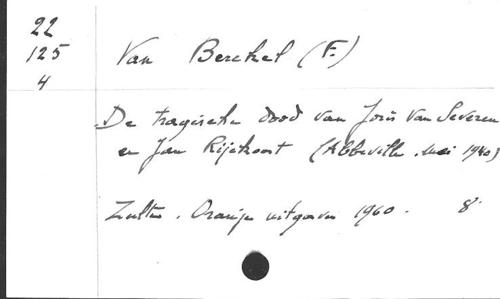 22
125
4
Van Berckel (F.)
De tragische dood van Joris Van Severen
en Jan Rijckoort (Abbeville. Mei 1940)
Zulte. Oranje uitgaven 1960. 8°